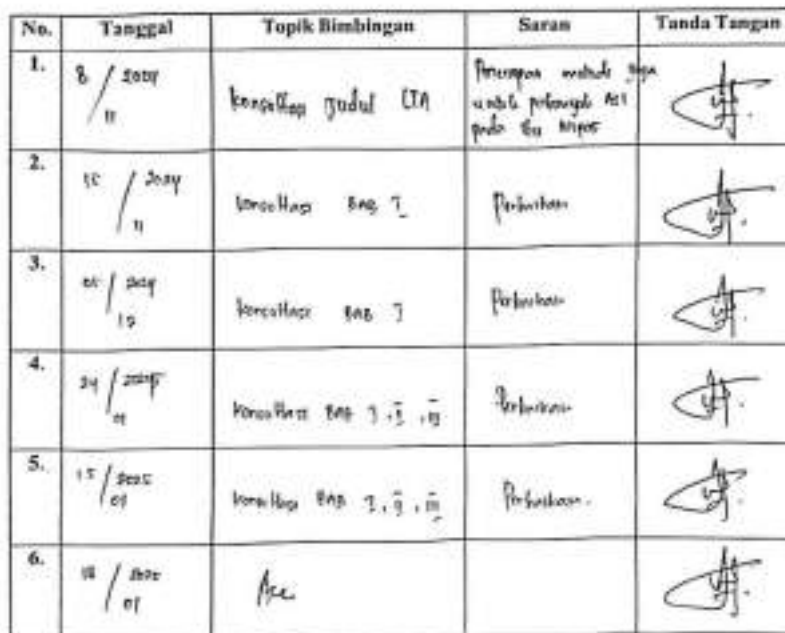 No. Tanggal Topik Bimbingan Saran Tanda Tangan
1. 8 / 2024 11 Konsultasi Judul LTA Penerapan metode
untuk ASI
pada ibu nifas
2. 15 / 2024 11 Konsultasi BAB I Perbaikan
3. 05 / 2024 12 Konsultasi BAB I Perbaikan
4. 24 / 01 Konsultasi BAB I, II, III Perbaikan
5. 15 / 2025 Konsultasi BAB I, II, III Perbaikan.
6. Acc